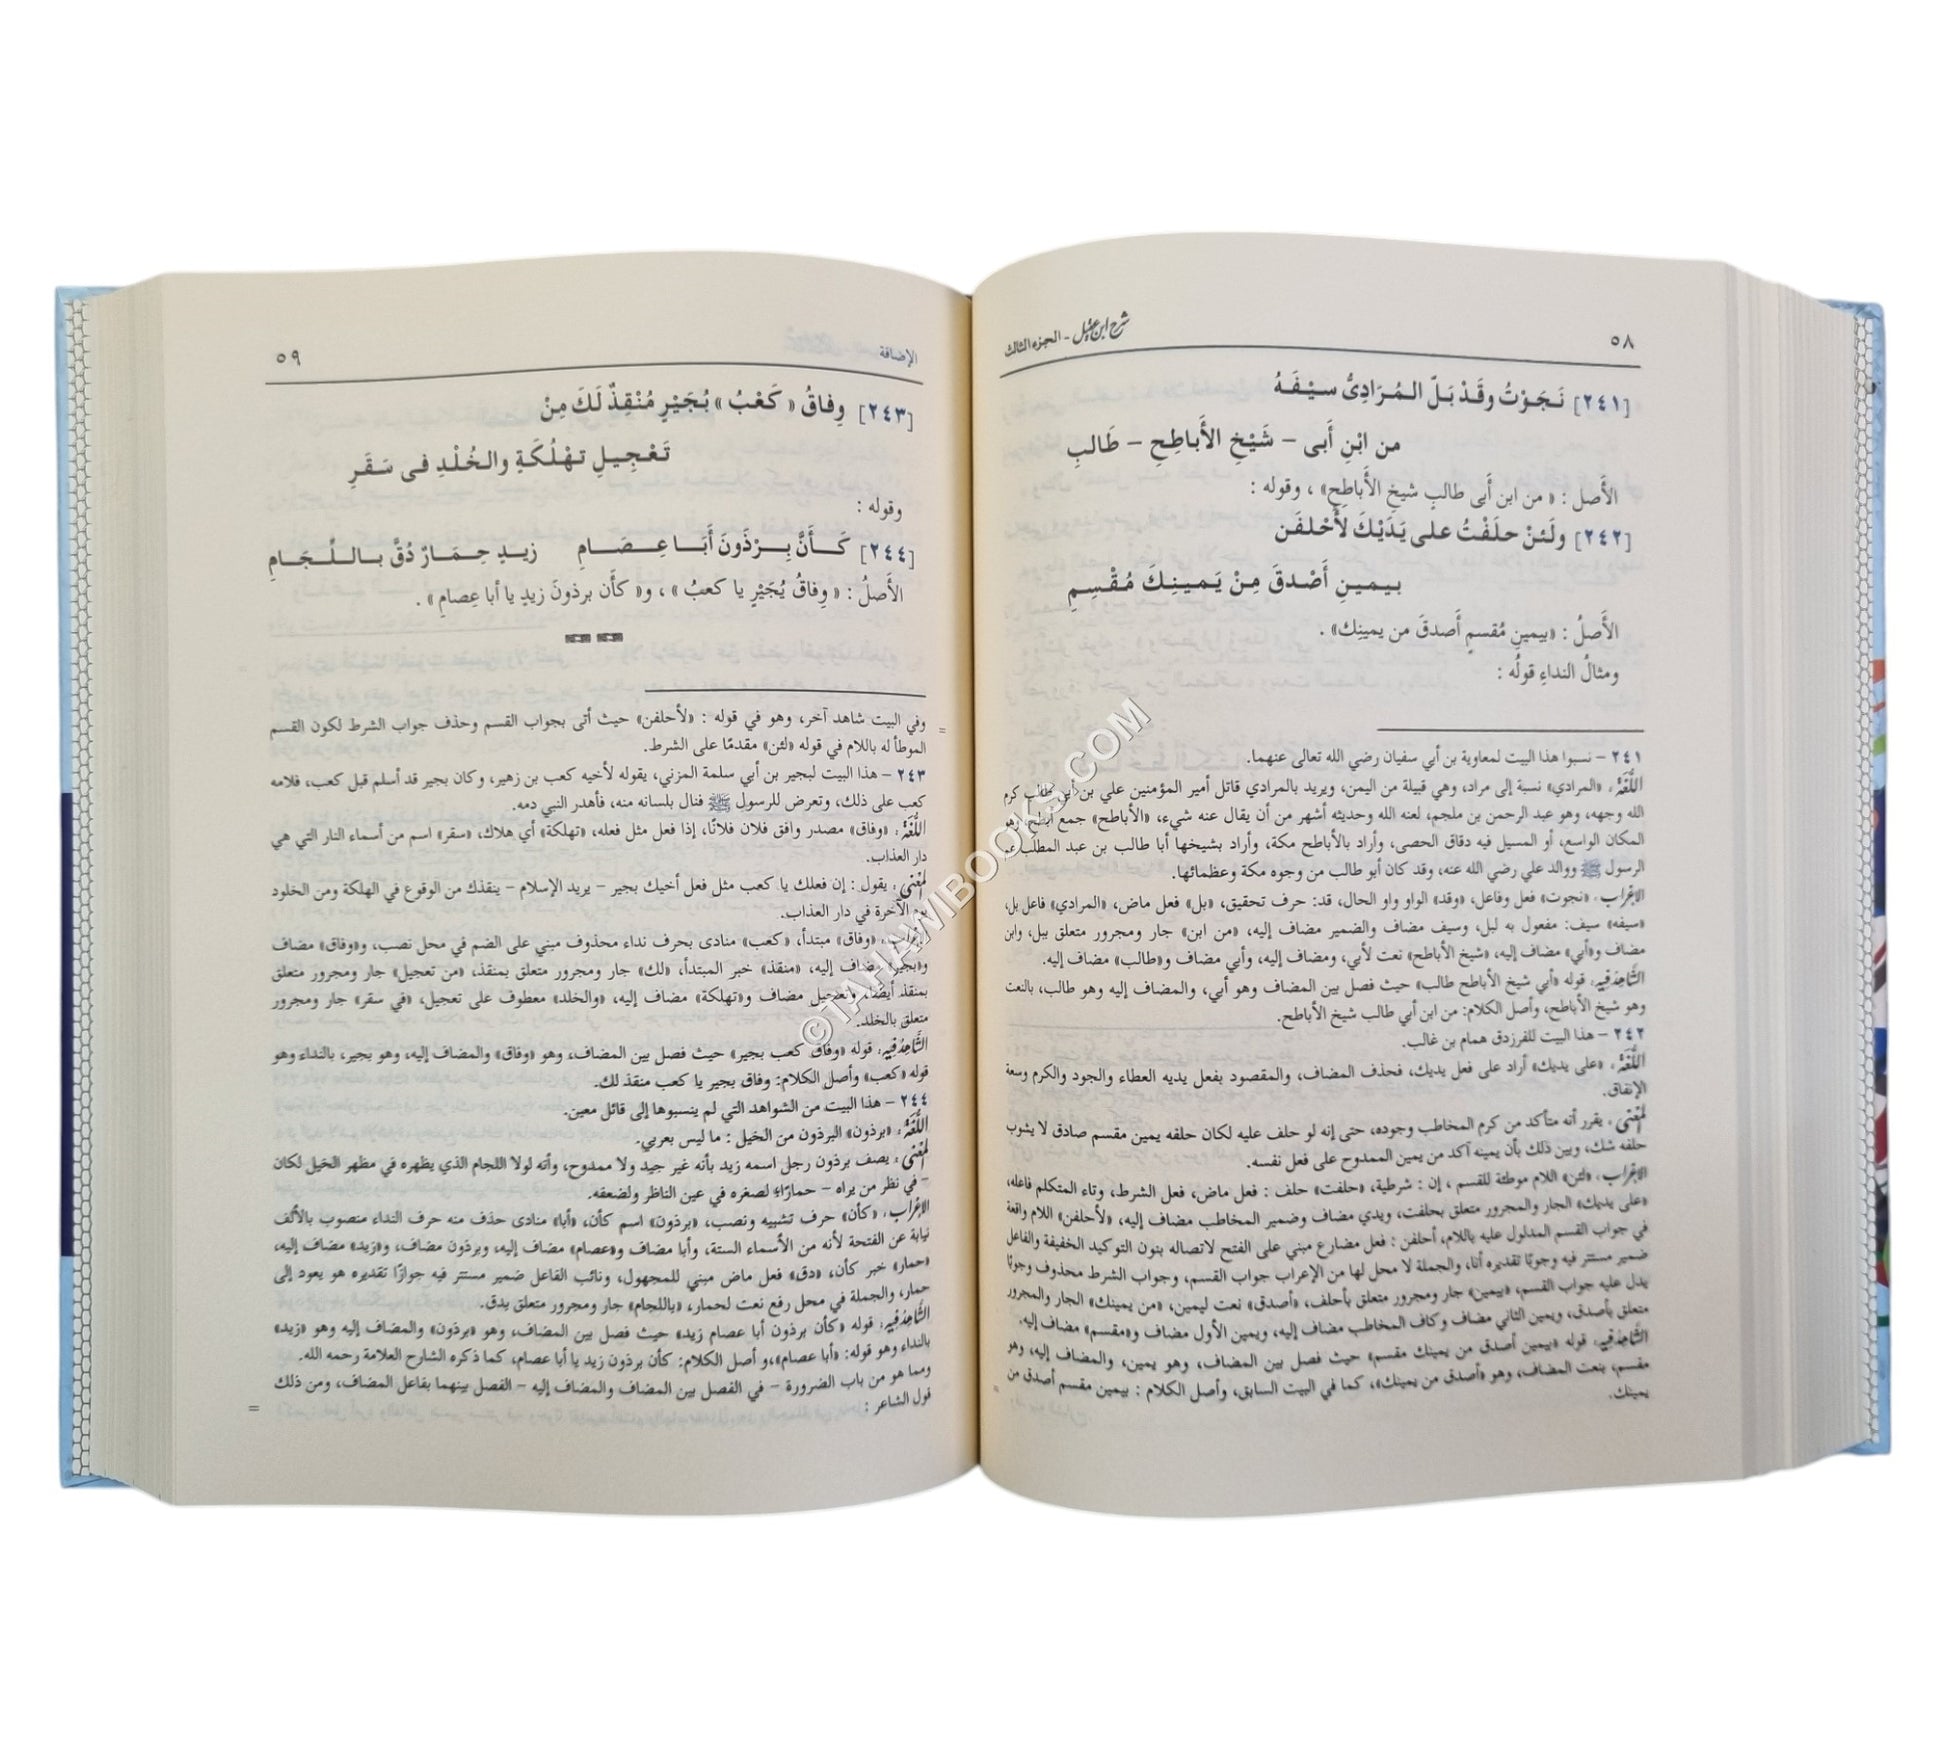 ٥٨
شرح ابن عقيل - الجزء الثالث
[٢٤١] نَجَوْتُ وقَدْ بَلّ المُرَادِىُّ سيْفَهُ
من ابْنِ أَبى – شَيْخِ الأَباطِحِ – طَالبِ
الأَصل : « من ابن أَبى طالبِ شيخِ الأَباطِحِ» ، وقوله :
[٢٤٢] ولَئنْ حلَفْتُ على يَدَيْكَ لأَحْلفَن
بيمينِ أَصْدقَ مِنْ يَمينِكَ مُقْسِمِ
الأَصلُ : «بيمينِ مُقسمٍ أَصدقَ من يمينِك» .
ومثالُ النداءِ قولُه :
٢٤١ – نسبوا هذا البيت لمعاوية بن أبي سفيان رضي الله تعالى عنهما.
اللُّغَةُ: «المرادي» نسبة إلى مراد، وهي قبيلة من اليمن، ويريد بالمرادي قاتل أمير المؤمنين علي بن أبي طالب كرم
الله وجهه، وهو عبد الرحمن بن ملجم، لعنه الله وحديثه أشهر من أن يقال عنه شيء، «الأباطح» جمع أبطح، وهو
المكان الواسع، أو المسيل فيه دقاق الحصى، وأراد بالأباطح مكة، وأراد بشيخها أبا طالب بن عبد المطلب عم
الرسول ﷺ ووالد علي رضي الله عنه، وقد كان أبو طالب من وجوه مكة وعظمائها.
الإعْرَاب: «نجوت» فعل وفاعل، «وقد» الواو واو الحال، قد: حرف تحقيق، «بل» فعل ماض، «المرادي» فاعل بل،
«سيفه» سيف: مفعول به لبل، وسيف مضاف والضمير مضاف إليه، «من ابن» جار ومجرور متعلق ببل، وابن
مضاف و«أبي» مضاف إليه، «شيخ الأباطح» نعت لأبي، ومضاف إليه، وأبي مضاف و«طالب» مضاف إليه.
الشَّاهِدُ فِيهِ: قوله «أبي شيخ الأباطح طالب» حيث فصل بين المضاف وهو أبي، والمضاف إليه وهو طالب، بالنعت
وهو شيخ الأباطح، وأصل الكلام: من ابن أبي طالب شيخ الأباطح.
٢٤٢ – هذا البيت للفرزدق همام بن غالب.
اللُّغَةُ: «على يديك» أراد على فعل يديك، فحذف المضاف، والمقصود بفعل يديه العطاء والجود والكرم وسعة
الإنفاق.
المَعْنى: يقرر أنه متأكد من كرم المخاطب وجوده، حتى إنه لو حلف عليه لكان حلفه يمين مقسم صادق لا يشوب
حلفه شك، وبين ذلك بأن يمينه آكد من يمين الممدوح على فعل نفسه.
الإعْرَاب: «لئن» اللام موطئة للقسم ، إن : شرطية، «حلفت» حلف : فعل ماض، فعل الشرط، وتاء المتكلم فاعله،
«على يديك» الجار والمجرور متعلق بحلفت، ويدي مضاف وضمير المخاطب مضاف إليه، «لأحلفن» اللام واقعة
في جواب القسم المدلول عليه باللام، أحلفن : فعل مضارع مبني على الفتح لاتصاله بنون التوكيد الخفيفة والفاعل
ضمير مستتر فيه وجوبًا تقديره أنا، والجملة لا محل لها من الإعراب جواب القسم، وجواب الشرط محذوف وجوبًا
يدل عليه جواب القسم، «بيمين» جار ومجرور متعلق بأحلف، «أصدق» نعت ليمين، «من يمينك» الجار والمجرور
متعلق بأصدق، ويمين الثاني مضاف وكاف المخاطب مضاف إليه، ويمين الأول مضاف و«مقسم» مضاف إليه.
الشَّاهِدُ فِيهِ: قوله «بيمين أصدق من يمينك مقسم» حيث فصل بين المضاف، وهو يمين، والمضاف إليه، وهو
مقسم، بنعت المضاف، وهو «أصدق من يمينك»، كما في البيت السابق، وأصل الكلام : بيمين مقسم أصدق من
يمينك.
=
الإضافة
٥٩
[٢٤٣] وِفاقُ « كَعْبُ » بُجَيْرٍ مُنْقِذٌ لَكَ مِنْ
تَعْجِيلِ تهْلُكَةِ والخُلْدِ فى سَقَرِ
وقوله :
[٢٤٤] كَأَنَّ بِرْذَونَ أَبَا عِصَامِ زيدٍ حِمَارٌ دُقَّ باللِّجَامِ
الأَصلُ : « وِفاقُ بُجَيْرٍ يا كعبُ » ، و« كأَن برذونَ زيدٍ يا أبا عِصامِ» .
= وفي البيت شاهد آخر، وهو في قوله : «لأحلفن» حيث أتى بجواب القسم وحذف جواب الشرط لكون القسم
الموطأ له باللام في قوله «لئن» مقدمًا على الشرط.
٢٤٣ – هذا البيت لبجير بن أبي سلمة المزني، يقوله لأخيه كعب بن زهير، وكان بجير قد أسلم قبل كعب، فلامه
كعب على ذلك، وتعرض للرسول ﷺ فنال بلسانه منه، فأهدر النبي دمه.
اللُّغَةُ: «وفاق» مصدر وافق فلان فلانًا، إذا فعل مثل فعله، «تهلكة» أي هلاك، «سقر» اسم من أسماء النار التي هي
دار العذاب.
المَعْنى: يقول : إن فعلك يا كعب مثل فعل أخيك بجير – يريد الإسلام – ينقذك من الوقوع في الهلكة ومن الخلود
يوم الآخرة في دار العذاب.
الإعْرَاب: «وفاق» مبتدأ، «كعب» منادى بحرف نداء محذوف مبني على الضم في محل نصب، و«وفاق» مضاف
و«بجير» مضاف إليه، «منقذ» خبر المبتدأ، «لك» جار ومجرور متعلق بمنقذ، «من تعجيل» جار ومجرور متعلق
بمنقذ أيضًا، وتعجيل مضاف و«تهلكة» مضاف إليه، «والخلد» معطوف على تعجيل، «في سقر» جار ومجرور
متعلق بالخلد.
الشَّاهِدُ فِيهِ: قوله «وفاق كعب بجير» حيث فصل بين المضاف، وهو «وفاق» والمضاف إليه، وهو بجير، بالنداء وهو
قوله «كعب» وأصل الكلام: وفاق بجير يا كعب منقذ لك.
٢٤٤ – هذا البيت من الشواهد التي لم ينسبوها إلى قائل معين.
اللُّغَةُ: «برذون» البرذون من الخيل : ما ليس بعربي.
المَعْنى: يصف برذون رجل اسمه زيد بأنه غير جيد ولا ممدوح، وأنه لولا اللجام الذي يظهره في مظهر الخيل لكان
– في نظر من يراه – حمارًا؛ لصغره في عين الناظر ولضعفه.
الإعْرَاب: «كأن» حرف تشبيه ونصب، «برذون» اسم كأن، «أبا» منادى حذف منه حرف النداء منصوب بالألف
نيابة عن الفتحة لأنه من الأسماء الستة، وأبا مضاف و«عصام» مضاف إليه، وبرذون مضاف، و«زيد» مضاف إليه،
«حمار» خبر كأن، «دق» فعل ماض مبني للمجهول، ونائب الفاعل ضمير مستتر فيه جوازًا تقديره هو يعود إلى
حمار، والجملة في محل رفع نعت لحمار، «باللجام» جار ومجرور متعلق بدق.
الشَّاهِدُ فِيهِ: قوله «كأن برذون أبا عصام زيد» حيث فصل بين المضاف، وهو «برذون» والمضاف إليه وهو «زيد»
بالنداء وهو قوله: «أبا عصام»،و أصل الكلام: كأن برذون زيد يا أبا عصام، كما ذكره الشارح العلامة رحمه الله.
ومما هو من باب الضرورة – في الفصل بين المضاف والمضاف إليه – الفصل بينهما بفاعل المضاف، ومن ذلك
قول الشاعر :
=
©TAHAWIBOOKS.COM